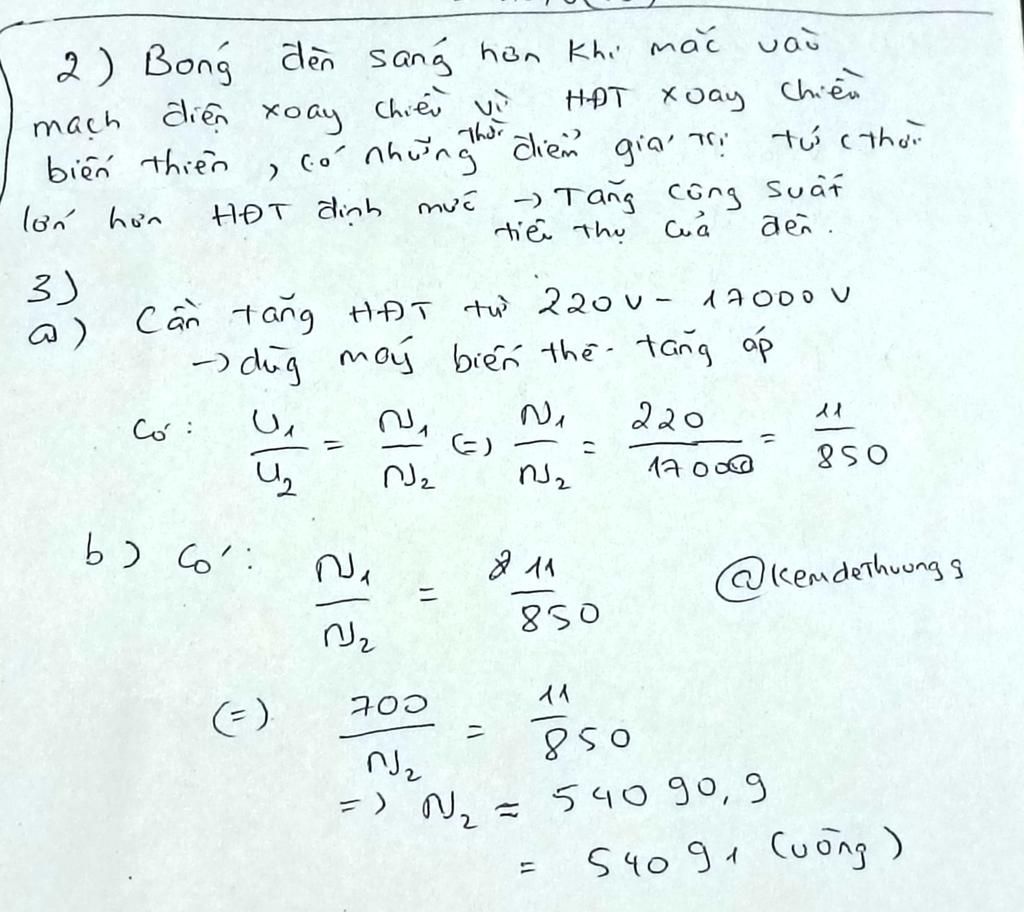 2) Bóng đèn sáng hơn khi mắc vào
mạch điện xoay chiều vì HĐT xoay chiều
biến thiên, có những thời điểm giá trị tức thời
lớn hơn HĐT định mức → Tăng công suất
tiêu thụ của đèn.
3)
a) Cần tăng HĐT từ 220V - 17000V
→ dùg máy biến thế tăng áp
Có: U₁/U₂ = N₁/N₂ (=) N₁/N₂ = 220/17000 = 11/850
b) Có: N₁/N₂ = 11/850
@kemdethuongs
(=) 700/N₂ = 11/850
=> N₂ ≈ 54090,9
= 54091 (vòng)